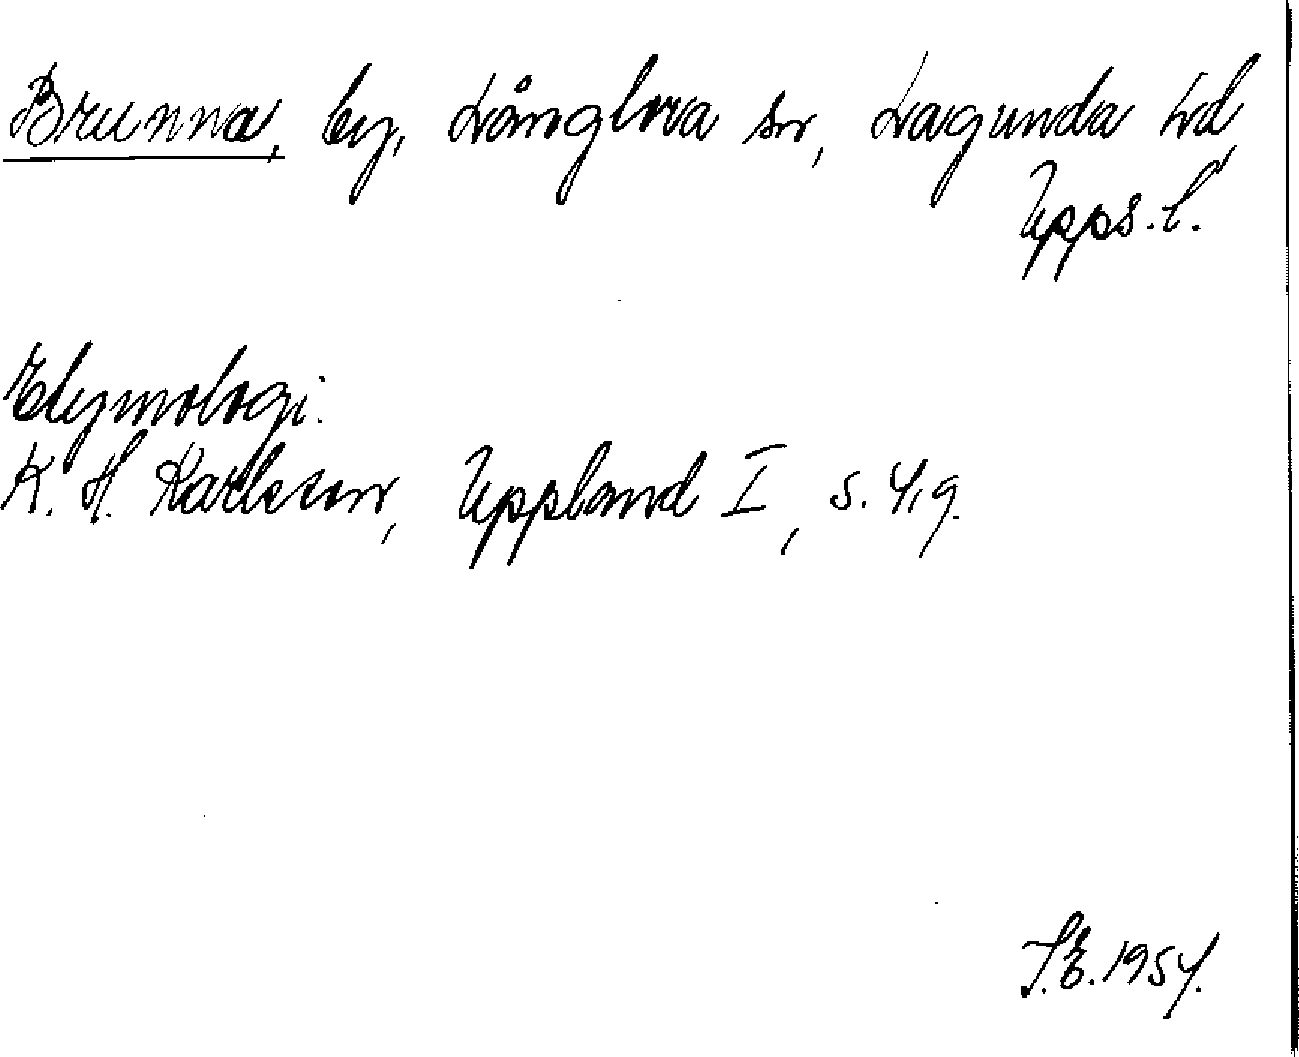 Brunna, by, Långtora sn, Lagunda hd,
Upps. l.
Etymologi:
K. H. Karlsson, Uppland I, s. 419.
S.E. 1954.